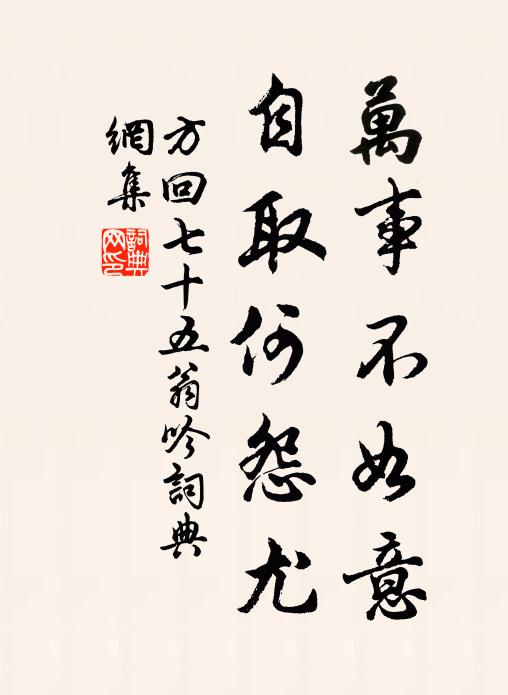 萬事不如意
自取何怨尤
方回七十五翁吟詞典
網集
詞典
网印